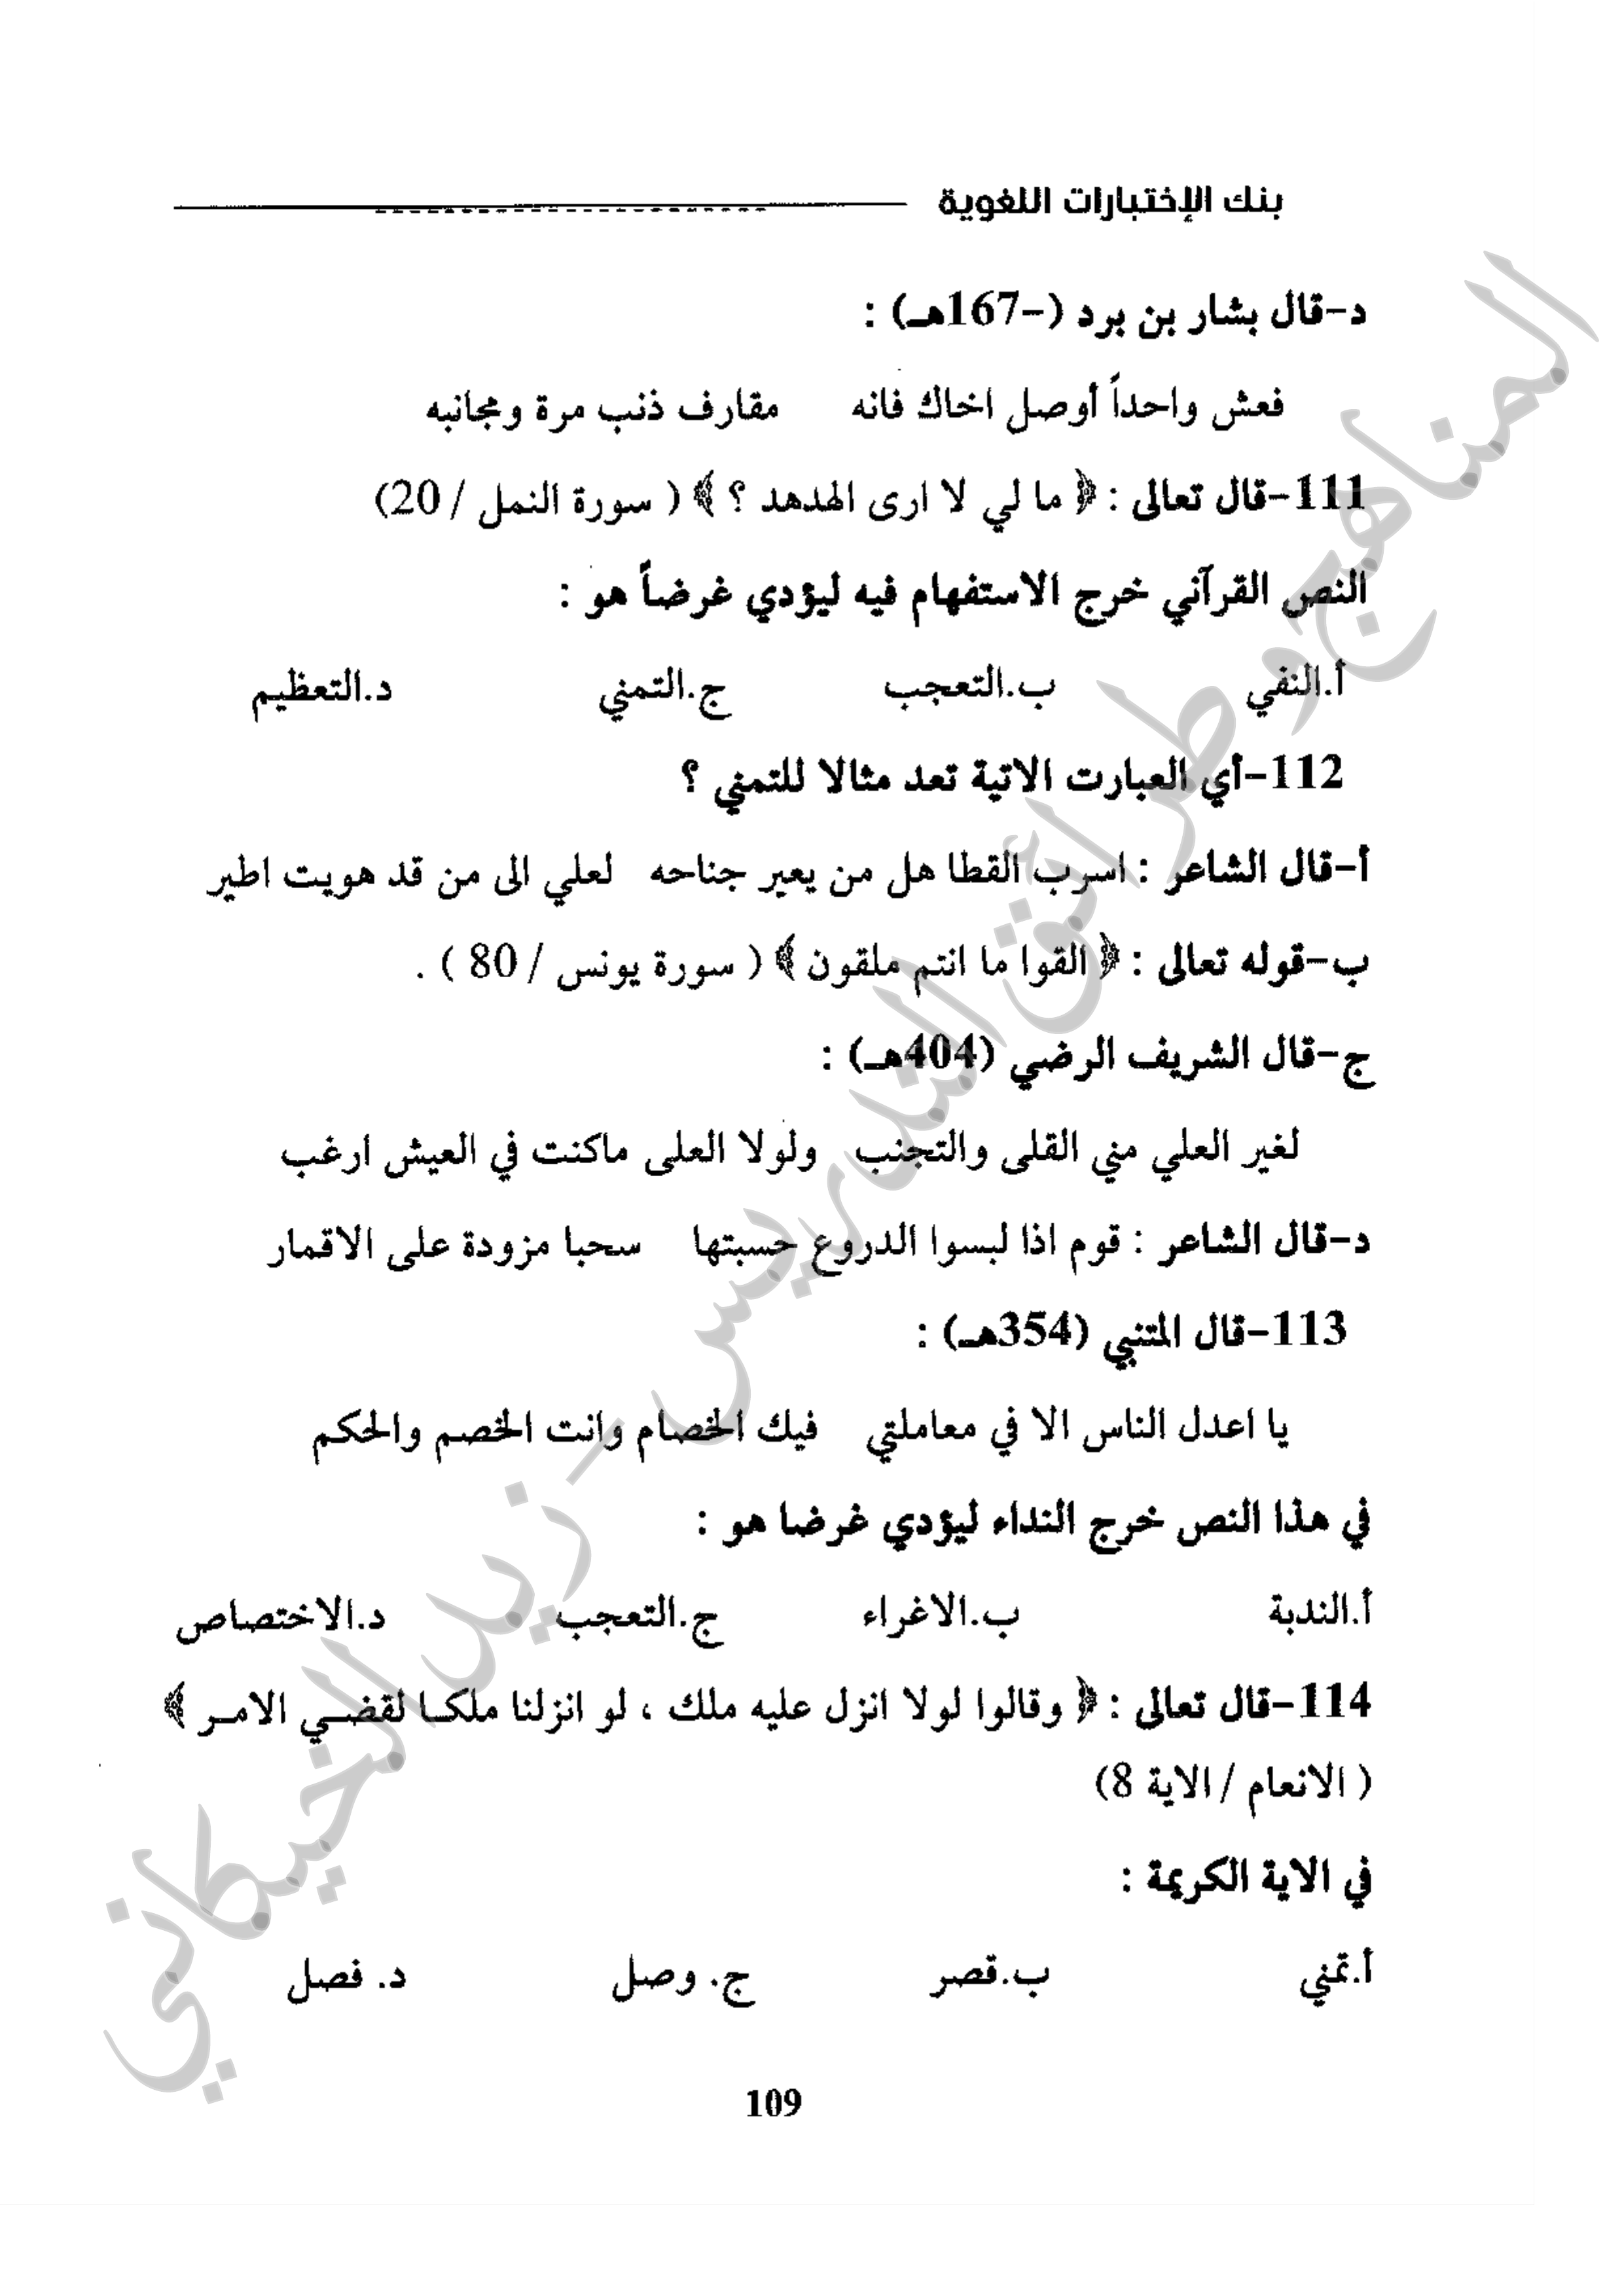 بنك الإختبارات اللغوية
د-قال بشار بن برد (-167هـ) :
فعش واحداً أوصل اخاك فانه مقارف ذنب مرة ومجانبه
111-قال تعالى : ﴿ ما لي لا ارى الهدهد ؟ ﴾ ( سورة النمل / 20)
النص القرآني خرج الاستفهام فيه ليؤدي غرضاً هو :
أ.النفي ب.التعجب ج.التمني د.التعظيم
112-أي العبارت الاتية تعد مثالا للتمني ؟
أ-قال الشاعر : اسرب القطا هل من يعير جناحه لعلي الى من قد هويت اطير
ب-قوله تعالى : ﴿ القوا ما انتم ملقون ﴾ ( سورة يونس / 80 ) .
ج-قال الشريف الرضي (404هـ) :
لغير العلي مني القلى والتجنب ولولا العلى ماكنت في العيش ارغب
د-قال الشاعر : قوم اذا لبسوا الدروع حسبتها سحبا مزودة على الاقمار
113-قال المتنبي (354هـ) :
يا اعدل الناس الا في معاملتي فيك الخصام وانت الخصم والحكم
في هذا النص خرج النداء ليؤدي غرضا هو :
أ.الندبة ب.الاغراء ج.التعجب د.الاختصاص
114-قال تعالى : ﴿ وقالوا لولا انزل عليه ملك ، لو انزلنا ملكـا لقضـي الامـر ﴾
( الانعام / الاية 8)
في الاية الكريمة :
أ.تمني ب.قصر ج. وصل د. فصل
109
المناهج وطرائق التدريس - زيد الخيكاني